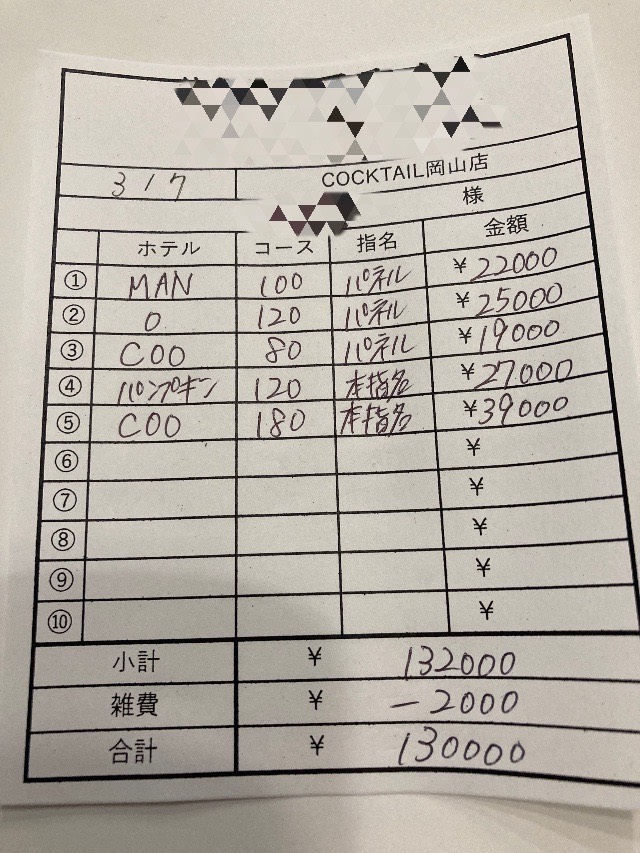 317 COCKTAIL岡山店
様
ホテル コース 指名 金額
① MAN 100 パネル ¥22000
② O 120 パネル ¥25000
③ COO 80 パネル ¥19000
④ パンプキン 120 本指名 ¥27000
⑤ COO 180 本指名 ¥39000
⑥ ¥
⑦ ¥
⑧ ¥
⑨ ¥
⑩ ¥
小計 ¥ 132000
雑費 ¥ -2000
合計 ¥ 130000